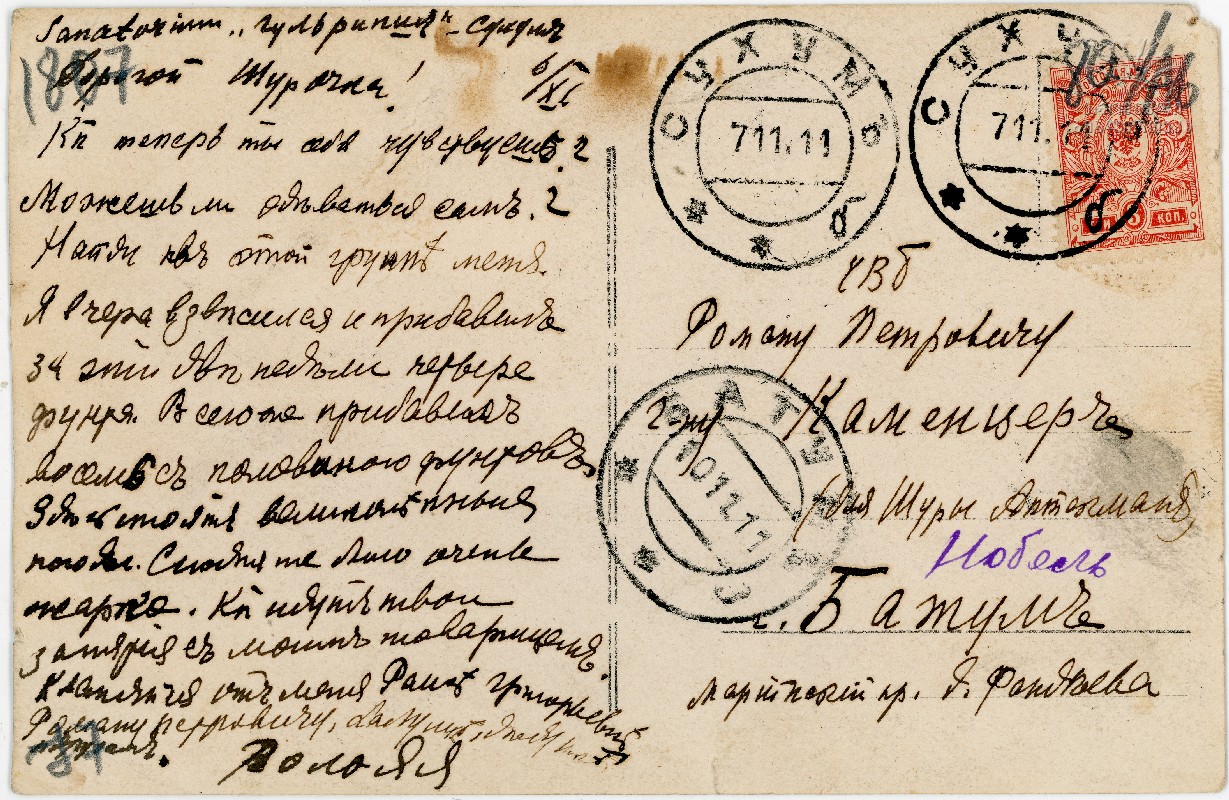 Sanatorium „Гульрипшъ"
Дорогой Шурочка! 6/XI
1807
Кк теперь ты себя чувствуешь?
Можешь ли одѣваться самъ?
Найди въ этой группѣ меня.
Я вчера взвѣсился и прибавилъ
за эти двѣ недѣли четыре
фунта. Всего же прибавилъ
восемь съ половиною фунтовъ.
Здѣсь стоятъ великолѣпныя
погоды. Сегодня же было очень
жарко. Кк идутъ твои
занятія съ моимъ товарищемъ.
Кланяйся отъ меня Раисѣ Григорьевнѣ
Роману Петровичу,
37
Володя
СУХУМЪ
7 11. 11
б
СУХУМЪ
7 11.
б
КОП.
Роману Петровичу
Г-ну Каменцеръ
(для Шуры
Нобель
г. Батумъ
БАТУМЪ
10 11. 11
Маріинскій пр. д.